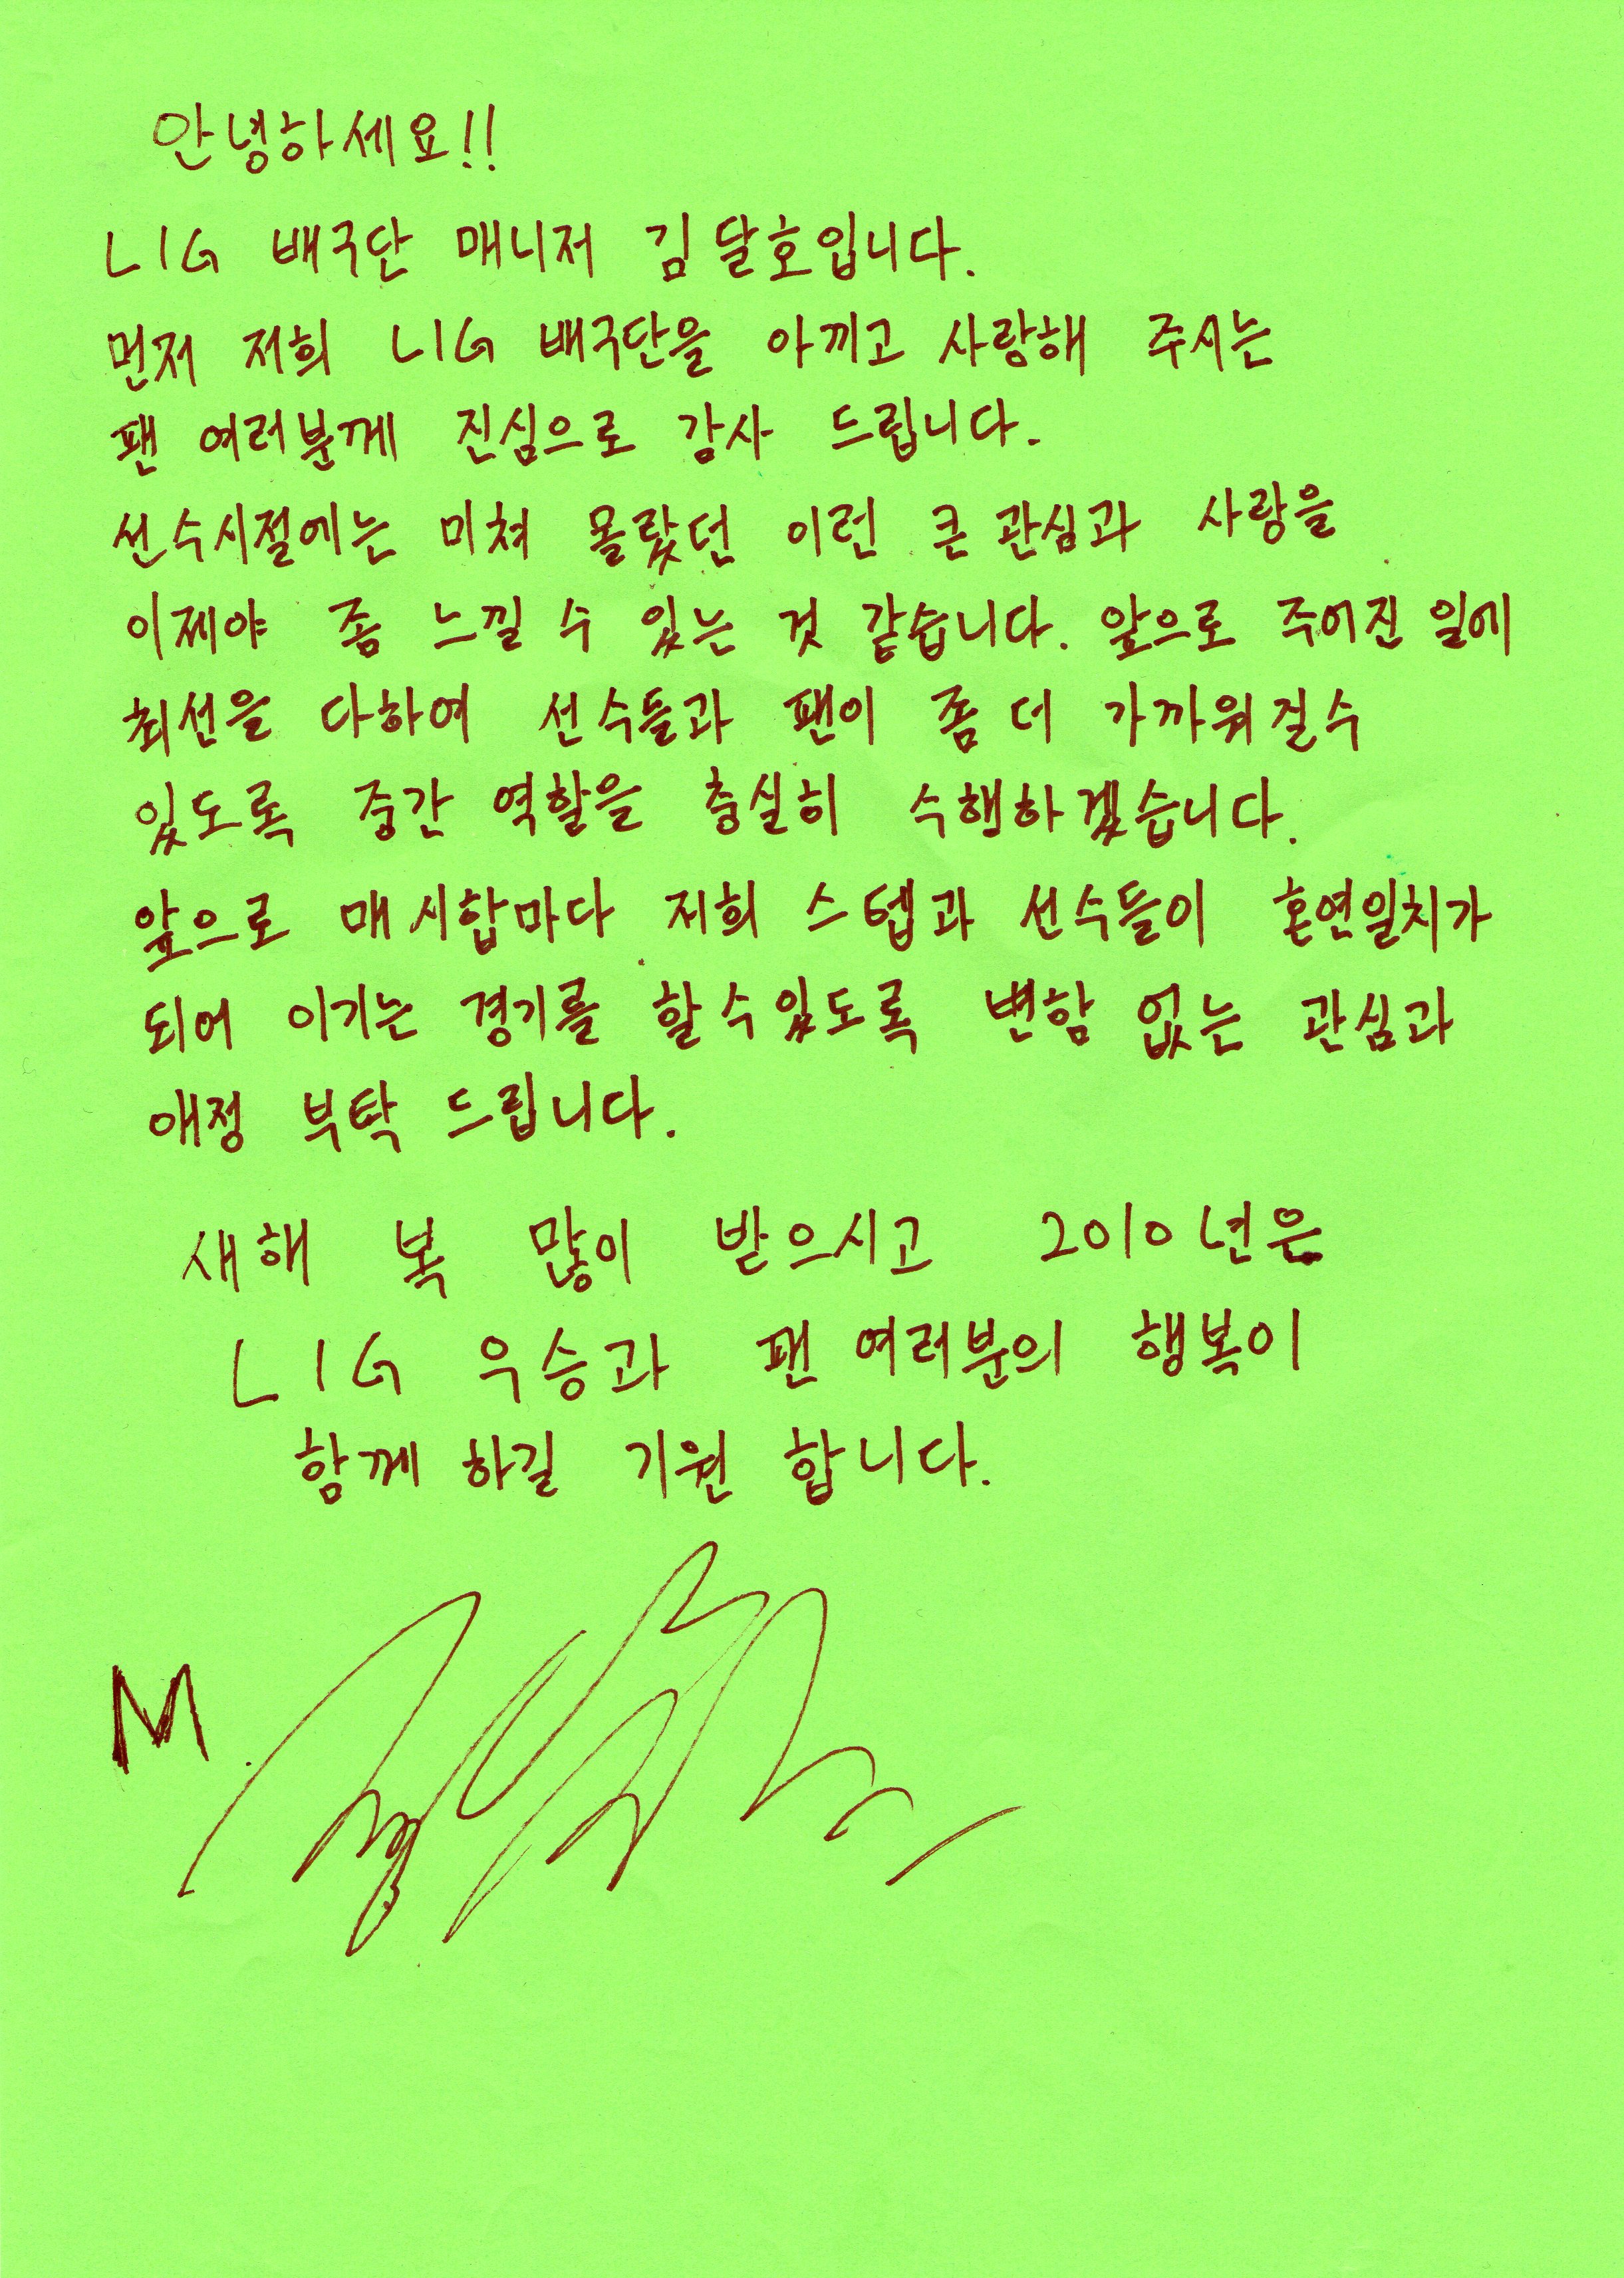 안녕하세요!!
LIG 배구단 매니저 김달호입니다.
먼저 저희 LIG 배구단을 아끼고 사랑해 주시는
팬 여러분께 진심으로 감사 드립니다.
선수시절에는 미쳐 몰랐던 이런 큰 관심과 사랑을
이제야 좀 느낄 수 있는 것 같습니다. 앞으로 주어진 일에
최선을 다하여 선수들과 팬이 좀 더 가까워질수
있도록 중간 역할을 충실히 수행하겠습니다.
앞으로 매 시합마다 저희 스텝과 선수들이 혼연일치가
되어 이기는 경기를 할수있도록 변함 없는 관심과
애정 부탁 드립니다.
새해 복 많이 받으시고 2010년은
LIG 우승과 팬 여러분의 행복이
함께 하길 기원 합니다.
M.